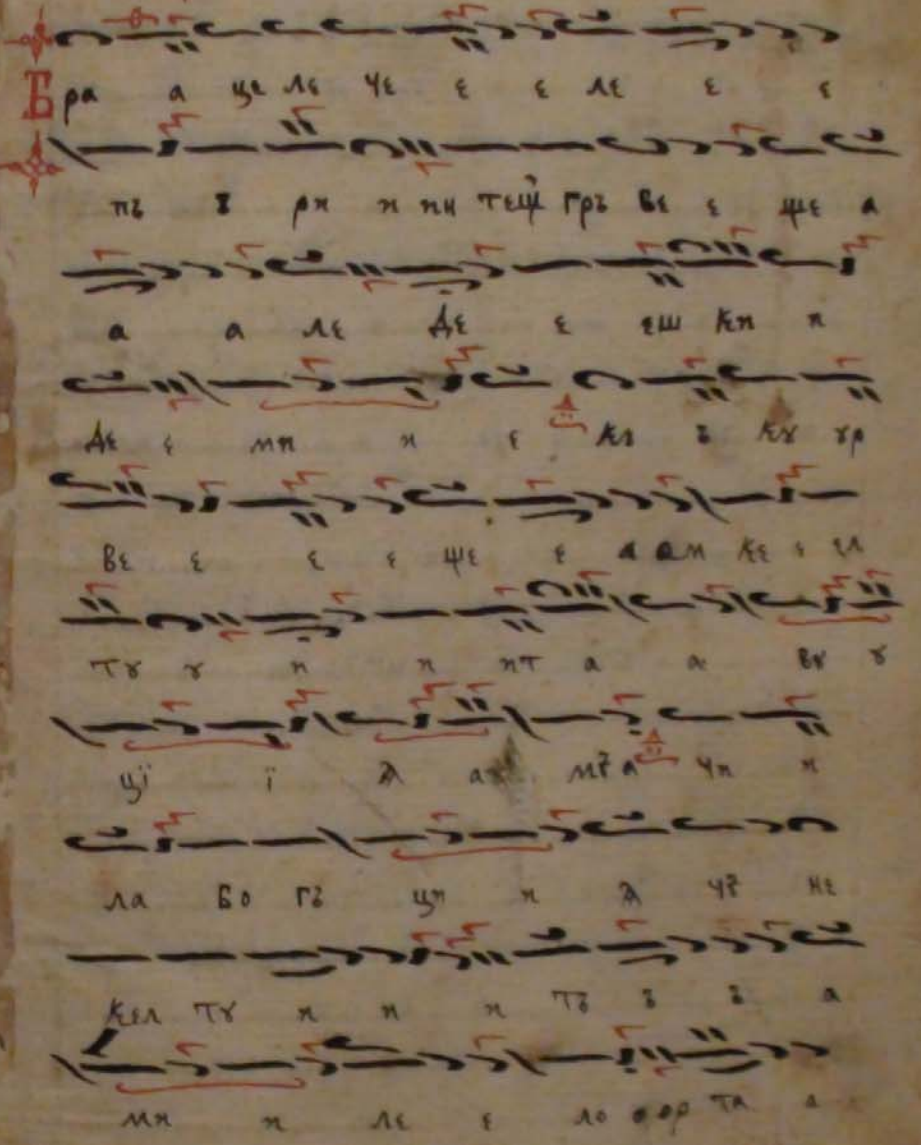 Б ра а це ле че е е ле е е
пъ ъ ри и ни теш гръ ве е ще а
а а ле де е еш ки и
де е ми и е къ ъ кꙋ ꙋр
ве е е е ще е а ам ке е ел
тꙋ ꙋ и и ит а а вꙋ ꙋ
цї ї ѧ а а чи и
ла бо гъ ци и ѧ не
кел тꙋ и и и тъ ъ ъ а
ми и ле е ло о ор та а